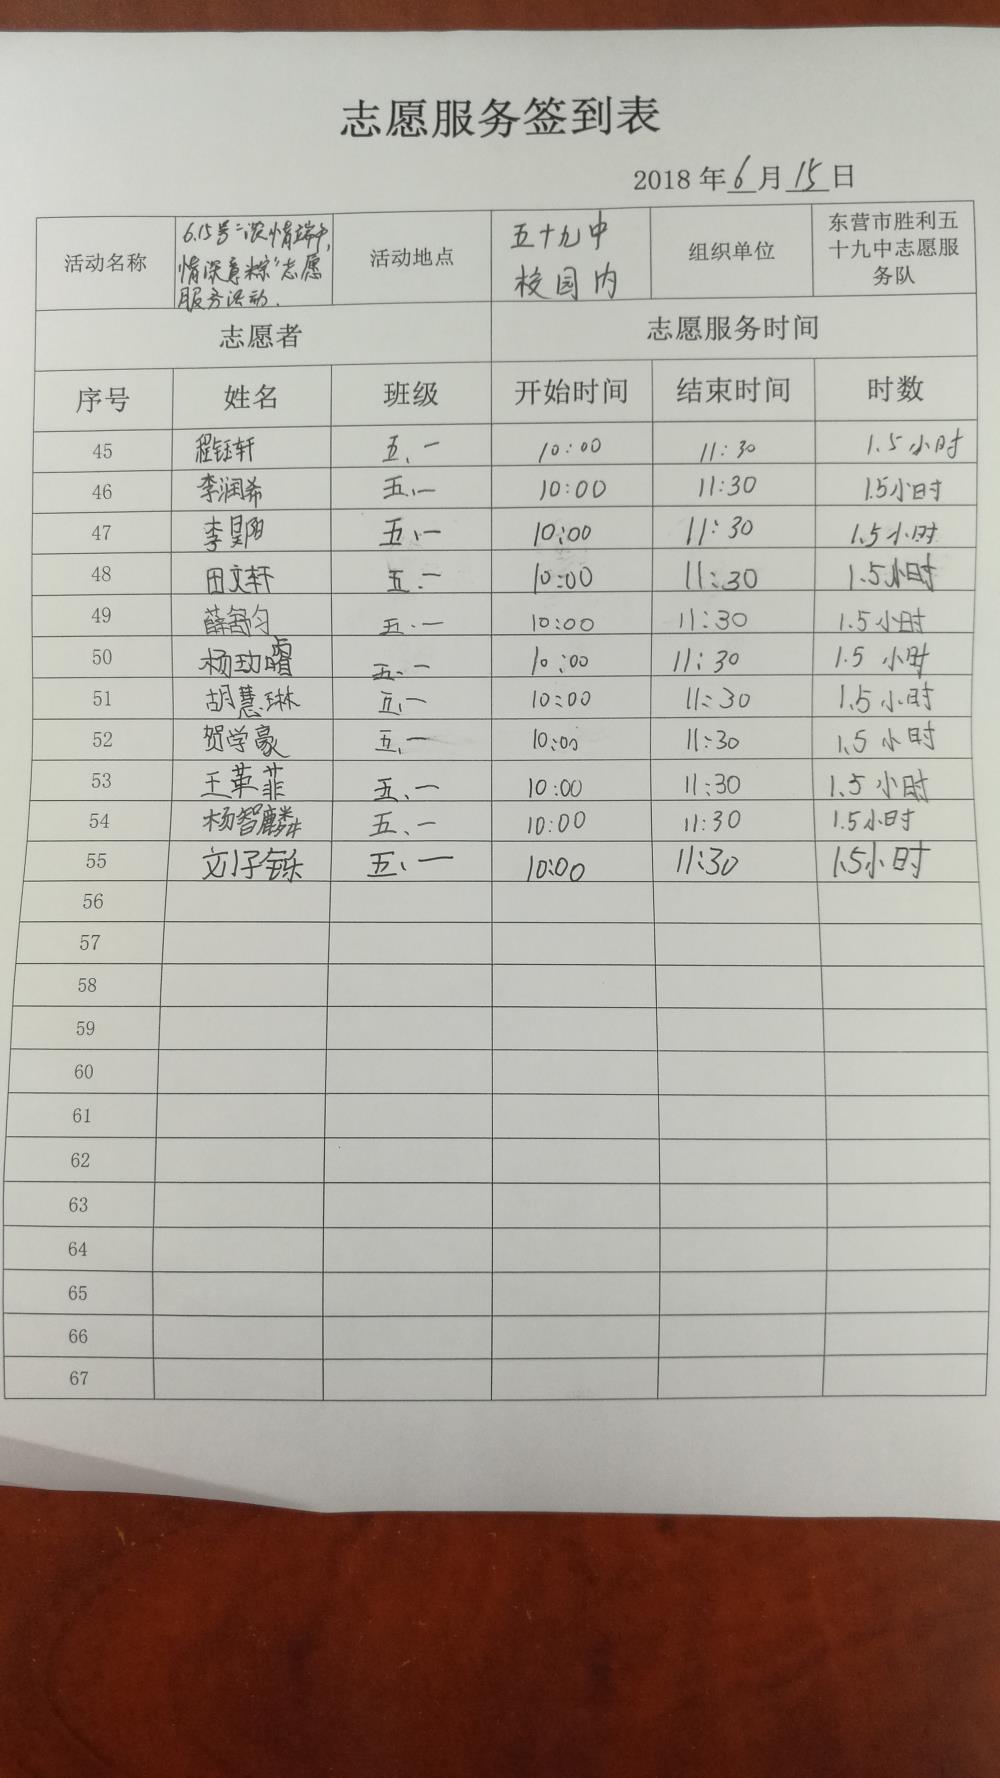 志愿服务签到表
2018 年 6 月 15 日
活动名称 6.15号“浓情端午, 活动地点 五十九中 组织单位 东营市胜利五
情深意粽”志愿 校园内 十九中志愿服
服务活动. 务队
志愿者 志愿服务时间
序号 姓名 班级 开始时间 结束时间 时数
45 程钰轩 五.一 10:00 11:30 1.5小时
46 李润希 五.一 10:00 11:30 1.5小时
47 李昊阳 五.一 10:00 11:30 1.5小时
48 田文轩 五.一 10:00 11:30 1.5小时
49 薛舒匀 五.一 10:00 11:30 1.5小时
50 杨 五.一 10:00 11:30 1.5小时
51 胡慧琳 五.一 10:00 11:30 1.5小时
52 贺学豪 五.一 10:00 11:30 1.5小时
53 王革菲 五、一 10:00 11:30 1.5小时
54 杨智麟 五、一 10:00 11:30 1.5小时
55 刘子铄 五.一 10:00 11:30 1.5小时
56
57
58
59
60
61
62
63
64
65
66
67